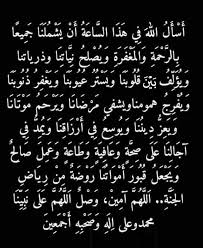 أَسْأَلُ اللهَ فِي هَذَا السَّاعَةُ أَنْ يَشْمُلَنَا جَمِيعًا
بِالرَّحْمَةِ وَالمَغْفَرَةِ وَيُصْلِحُ نِيَّاتِنَا وذرياتنا
وَيُؤَلِّفُ بَيْنَ قُلُوبَنَا وَيَسْتُرُ عُيُوبَنَا وَيَغْفِرُ ذُنُوبَنَا
وَيُفْرِجُ همومنا ويشفي مَرْضَانَا وَيَرْحَمُ مَوْتَانَا
وَيَعِزُّ دِينُنَا وَيُوسِعُ فِي أَرْزَاقِنَا وَيُمَدُّ فِي
آجالنا عَلَى صِحَّةٍ وَعَافِيَةٍ وَطَاعَةٍ وَعَمَلٍ صَالِحٍ
وَيَجْعَلُ قُبُورَ أَمْوَاتِنَا رَوْضَةٌ مِنْ رِيَاضِ
الجَنَّةِ.. اللَّهُمَّ آمِينْ، وَصْلُ اللَّهُمَّ عَلَى نَبِيِّنَا
محمدوعلى اِلَهِ وَصَحِبِهِ أَجْمَعِينَ